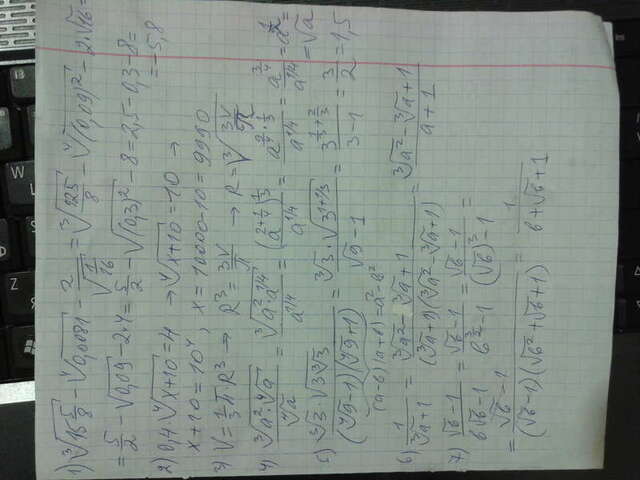 1) ∛(15 5/8) - ⁴√0,0081 - 2/√(1/16) = ∛(125/8) - ⁴√(0,09)² - 2·√16 =
= 5/2 - √0,09 - 2·4 = 5/2 - √(0,3)² - 8 = 2,5 - 0,3 - 8 =
= -5,8
2) 0,4·⁴√(x+10) = 4 → ⁴√(x+10) = 10 →
x+10 = 10⁴, x = 10000-10 = 9990
3) V = 1/3 π R³ → R³ = 3V/π → R = ∛(3V/π)
4) ∛(a²·⁴√a)/⁴√a = ∛(a²·a^(1/4))/a^(1/4) = (a^(2+1/4))^(1/3)/a^(1/4) = a^(9/4·1/3)/a^(1/4) = a^(3/4)/a^(1/4) = a^(1/2) =
= √a
5) ∛3·√(3∛3)/((⁴√9-1)(⁴√9+1)) = ∛3·√(3^(1+1/3))/(√9-1) = 3^(1/3+2/3)/(3-1) = 3/2 = 1,5
(a-b)(a+b) = a²-b²
6) 1/(∛a+1) = (∛a²-∛a+1)/((∛a+1)(∛a²-∛a+1)) = (∛a²-∛a+1)/(a+1)
7) (√b-1)/(b√b-1) = (√b-1)/(b^(3/2)-1) = (√b-1)/((√b)³-1) =
= (√b-1)/((√b-1)(√b²+√b+1)) = 1/(b+√b+1)